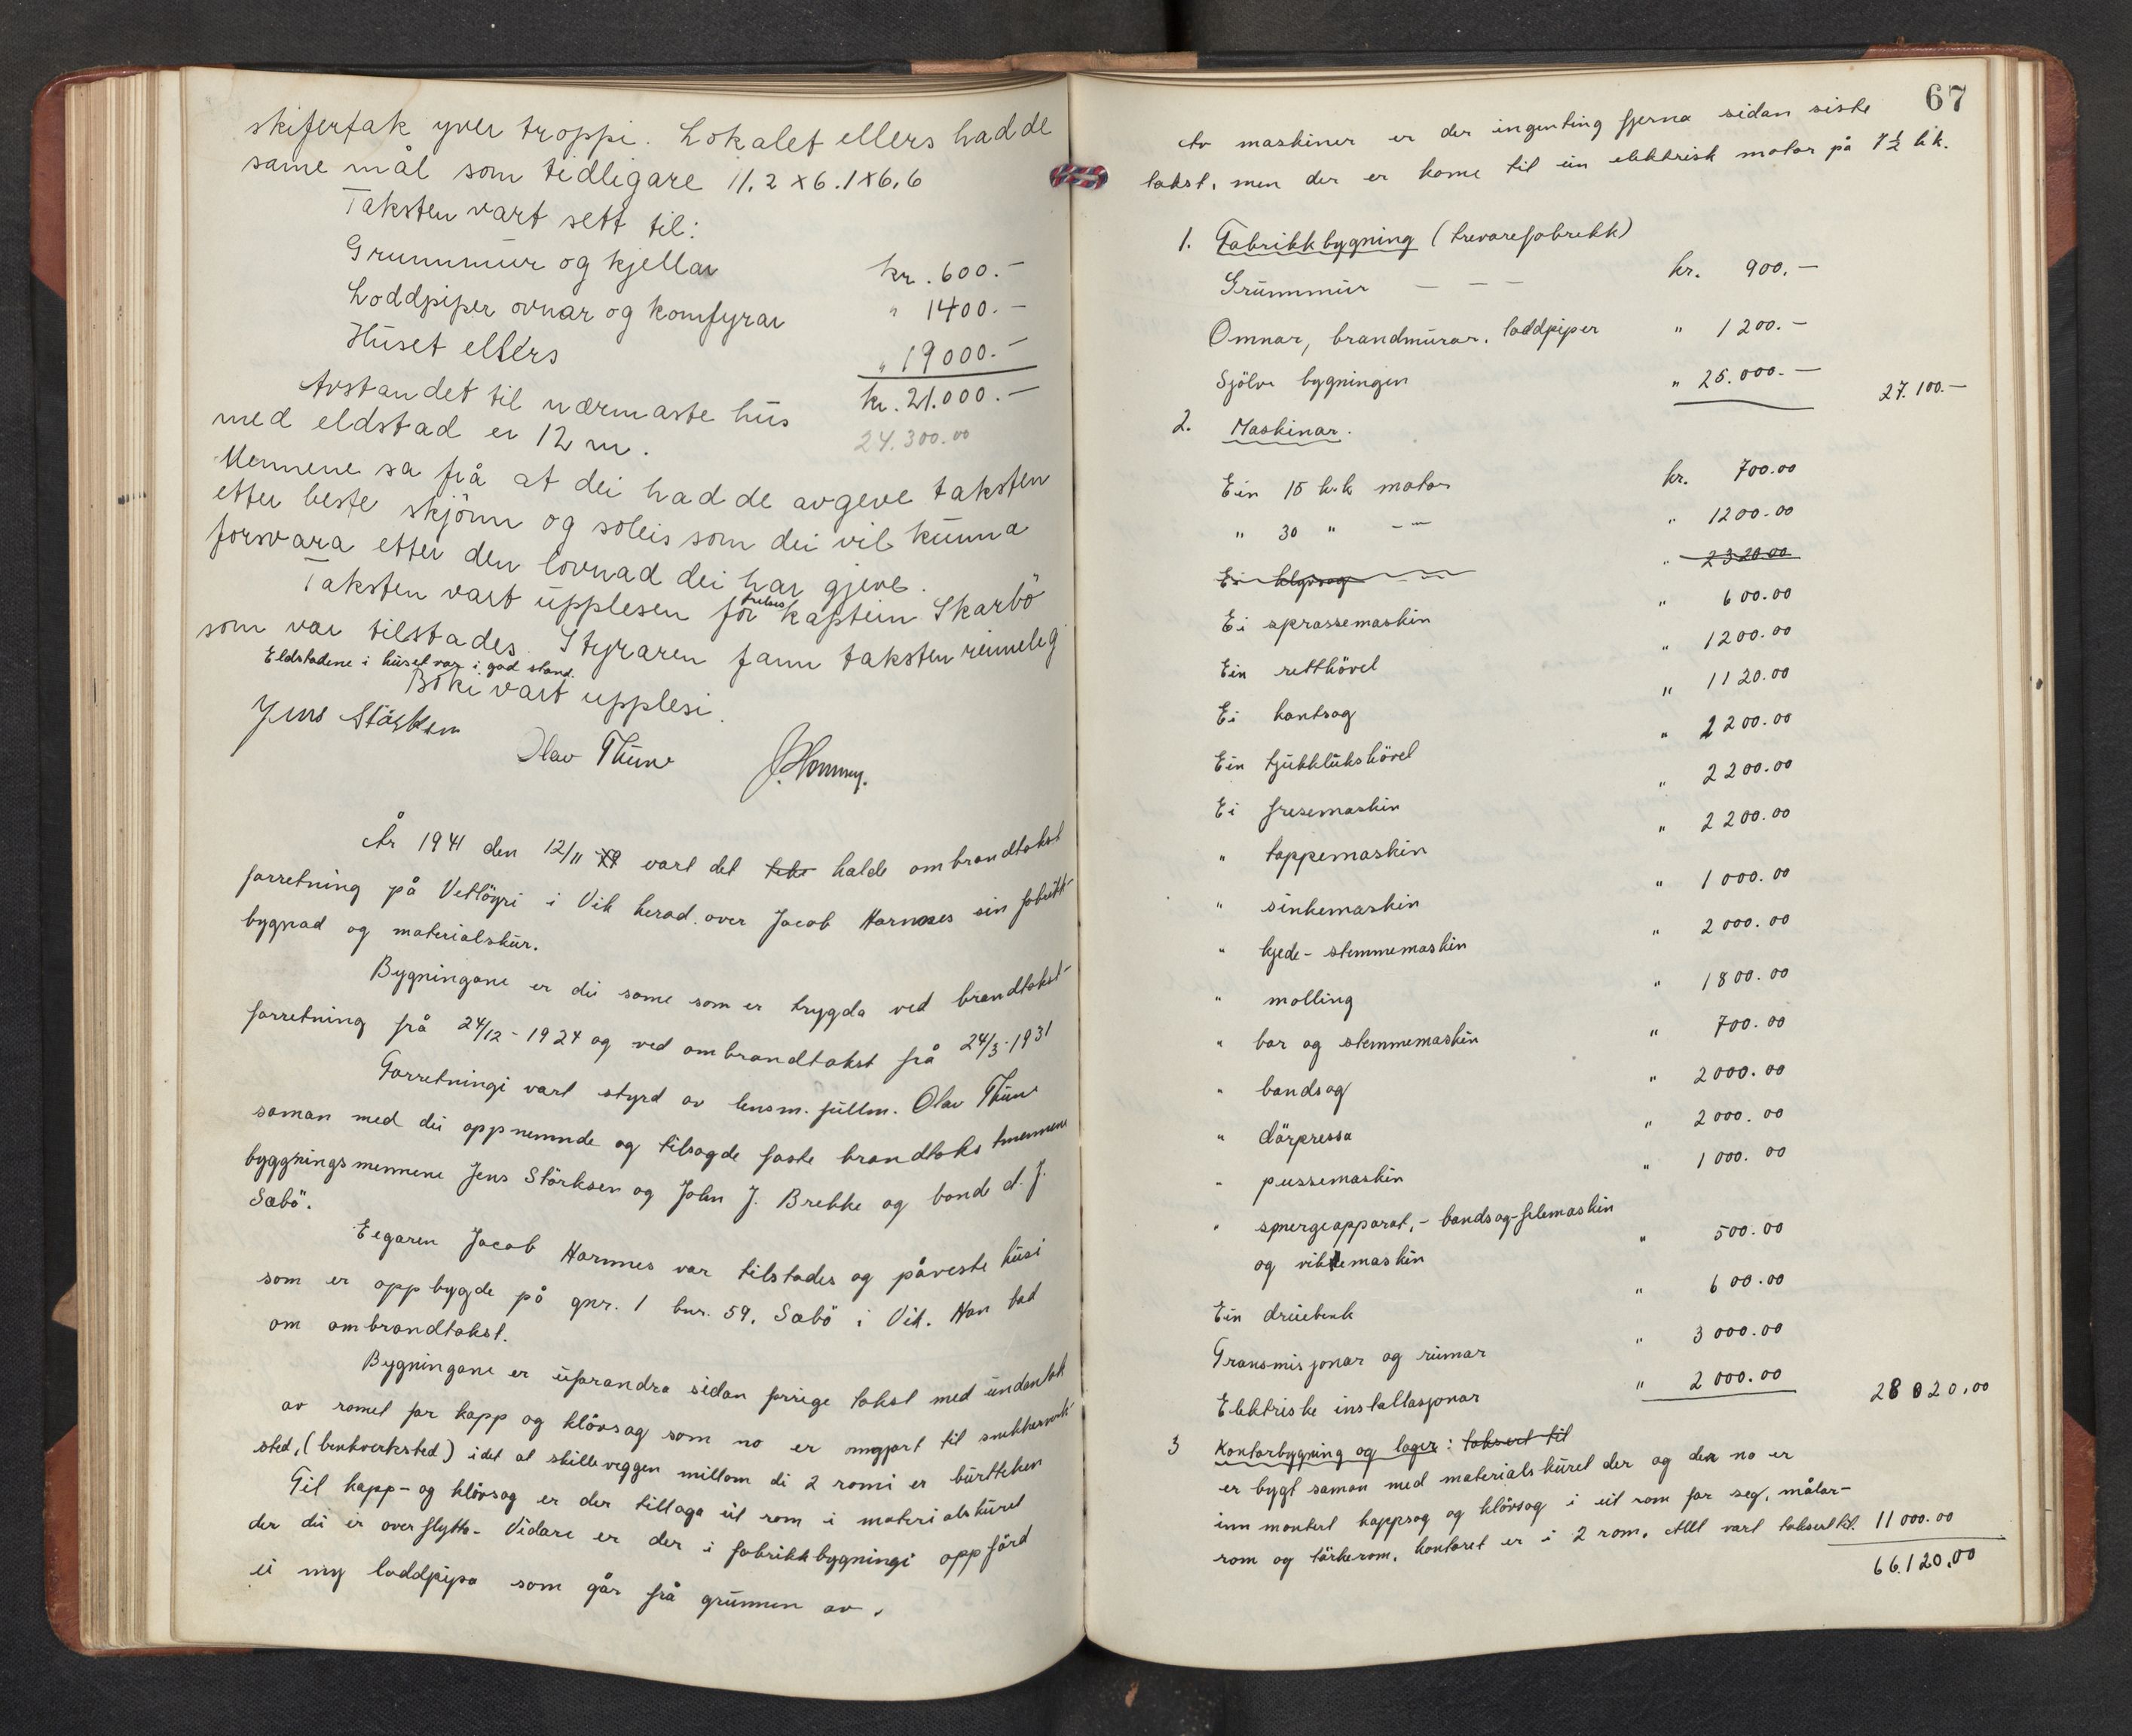 skifertak yver troppi. Lokalet ellers hadde
same mål som tidligare 11.2 x 6.1 x 6,6
Taksten vart sett til:
Grunnmur og kjellar kr. 600.-
Loddpiper ovnar og komfyrar " 1400.-
Huset ellers " 19000.-
kr. 21.000.-
24.300.00
Avstandet til nærmaste hus
med eldstad er 12 m.
Mennene sa frå at dei hadde avgeve taksten
etter beste skjönn og soleis som dei vil kunna
forsvara etter den lovnad dei har gjeve.
Taksten vart upplesen for frelses kaptein Skarbö
som var tilstades. Styraren fann taksten rimeleg
Eldstadene i huset var i god stand.
Boki vart upplesi.
Jens Störksen
Olav Thune
År 1941 den 12/11 vart det halde ombrandtakst
forretning på Vetlöyri i Vik herad over Jacob Hamnes sin fabrikk-
bygnad og materialskur.
Bygningane er dei same som er trygda ved brandtakst-
forretning frå 24/12-1924 og ved ombrandtakst frå 24/3-1931
Forretningi vart styrd av lensm. fullm. Olav Thune
saman med dei oppnemnde og tilsagde faste brandtakstmennene
byggningsmennene Jens Störksen og John J. Brekke og bonde d. J.
Sæbö.
Eigaren Jacob Hamnes var tilstades og påveste husi
som er oppbygde på gnr. 1 bnr. 59, Sæbö i Vik. Han bad
om ombrandtakst.
Bygningane er uforandra sidan forrige takst med undantak
av romet for kapp og klövsag som no er omgjort til snekkerverk-
sted, (benkverksted) idet at skilleveggen millom di 2 romi er burtteken
Til kapp- og klövsag er der tillaga eit rom i materialskuret
der dei er overflytta. Vidare er der i fabrikkbygningi oppförd
ei ny loddpipa som går frå grunnen av.
67
Av maskiner er der ingenting fjerna sidan siste
takst, men der er kome til ein elektrisk motor på 7½ h.k.
1. Fabrikkbygning (trevarefabrikk)
Grunnmur — — — kr. 900.-
Omnar, brandmurar, loddpiper " 1200.-
Sjölve bygningen " 25.000.- 27.100.-
2. Maskinar.
Ein 15 h.k motor kr. 700.00
" 30 " — — " 1200.00
Ei klyvsag " 2320.00
Ei sprassemaskin " 600.00
Ein retthövel " 1200.00
Ei kantsag " 1120.00
Ein tjukklükshövel " 2200.00
Ei fresemaskin " 2200.00
" tappemaskin " 2200.00
" sinkemaskin " 1000.00
" kjede-stemmemaskin " 2000.00
" molling " 1800.00
" bor og stemmemaskin " 700.00
" bandsag " 2000.00
" dörpressa " 2000.00
" pussemaskin " 1000.00
" smergeapparat, - bandsag-filemaskin
og vikkemaskin " 500.00
Ein dreiebenk " 600.00
Transmisjonar og reimar " 3000.00
Elektriske installasjonar " 2000.00 28020.00
3 Kontorbygning og lager: taksert til
er bygt saman med materialskuret der og den no er
inn montert kappsag og klövsag i eit rom for seg, målar-
rom og törkerom, kontoret er i 2 rom. Alt vart taksert til. 11000.00
66.120.00